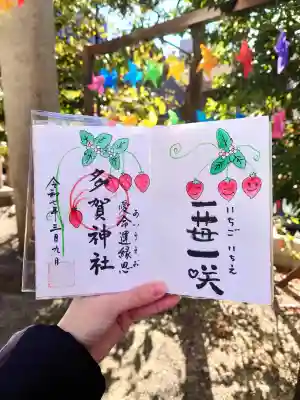 いちご いちえ
一苺一咲
あいうえお
愛命運縁恩
多賀神社
令和七年三月九日